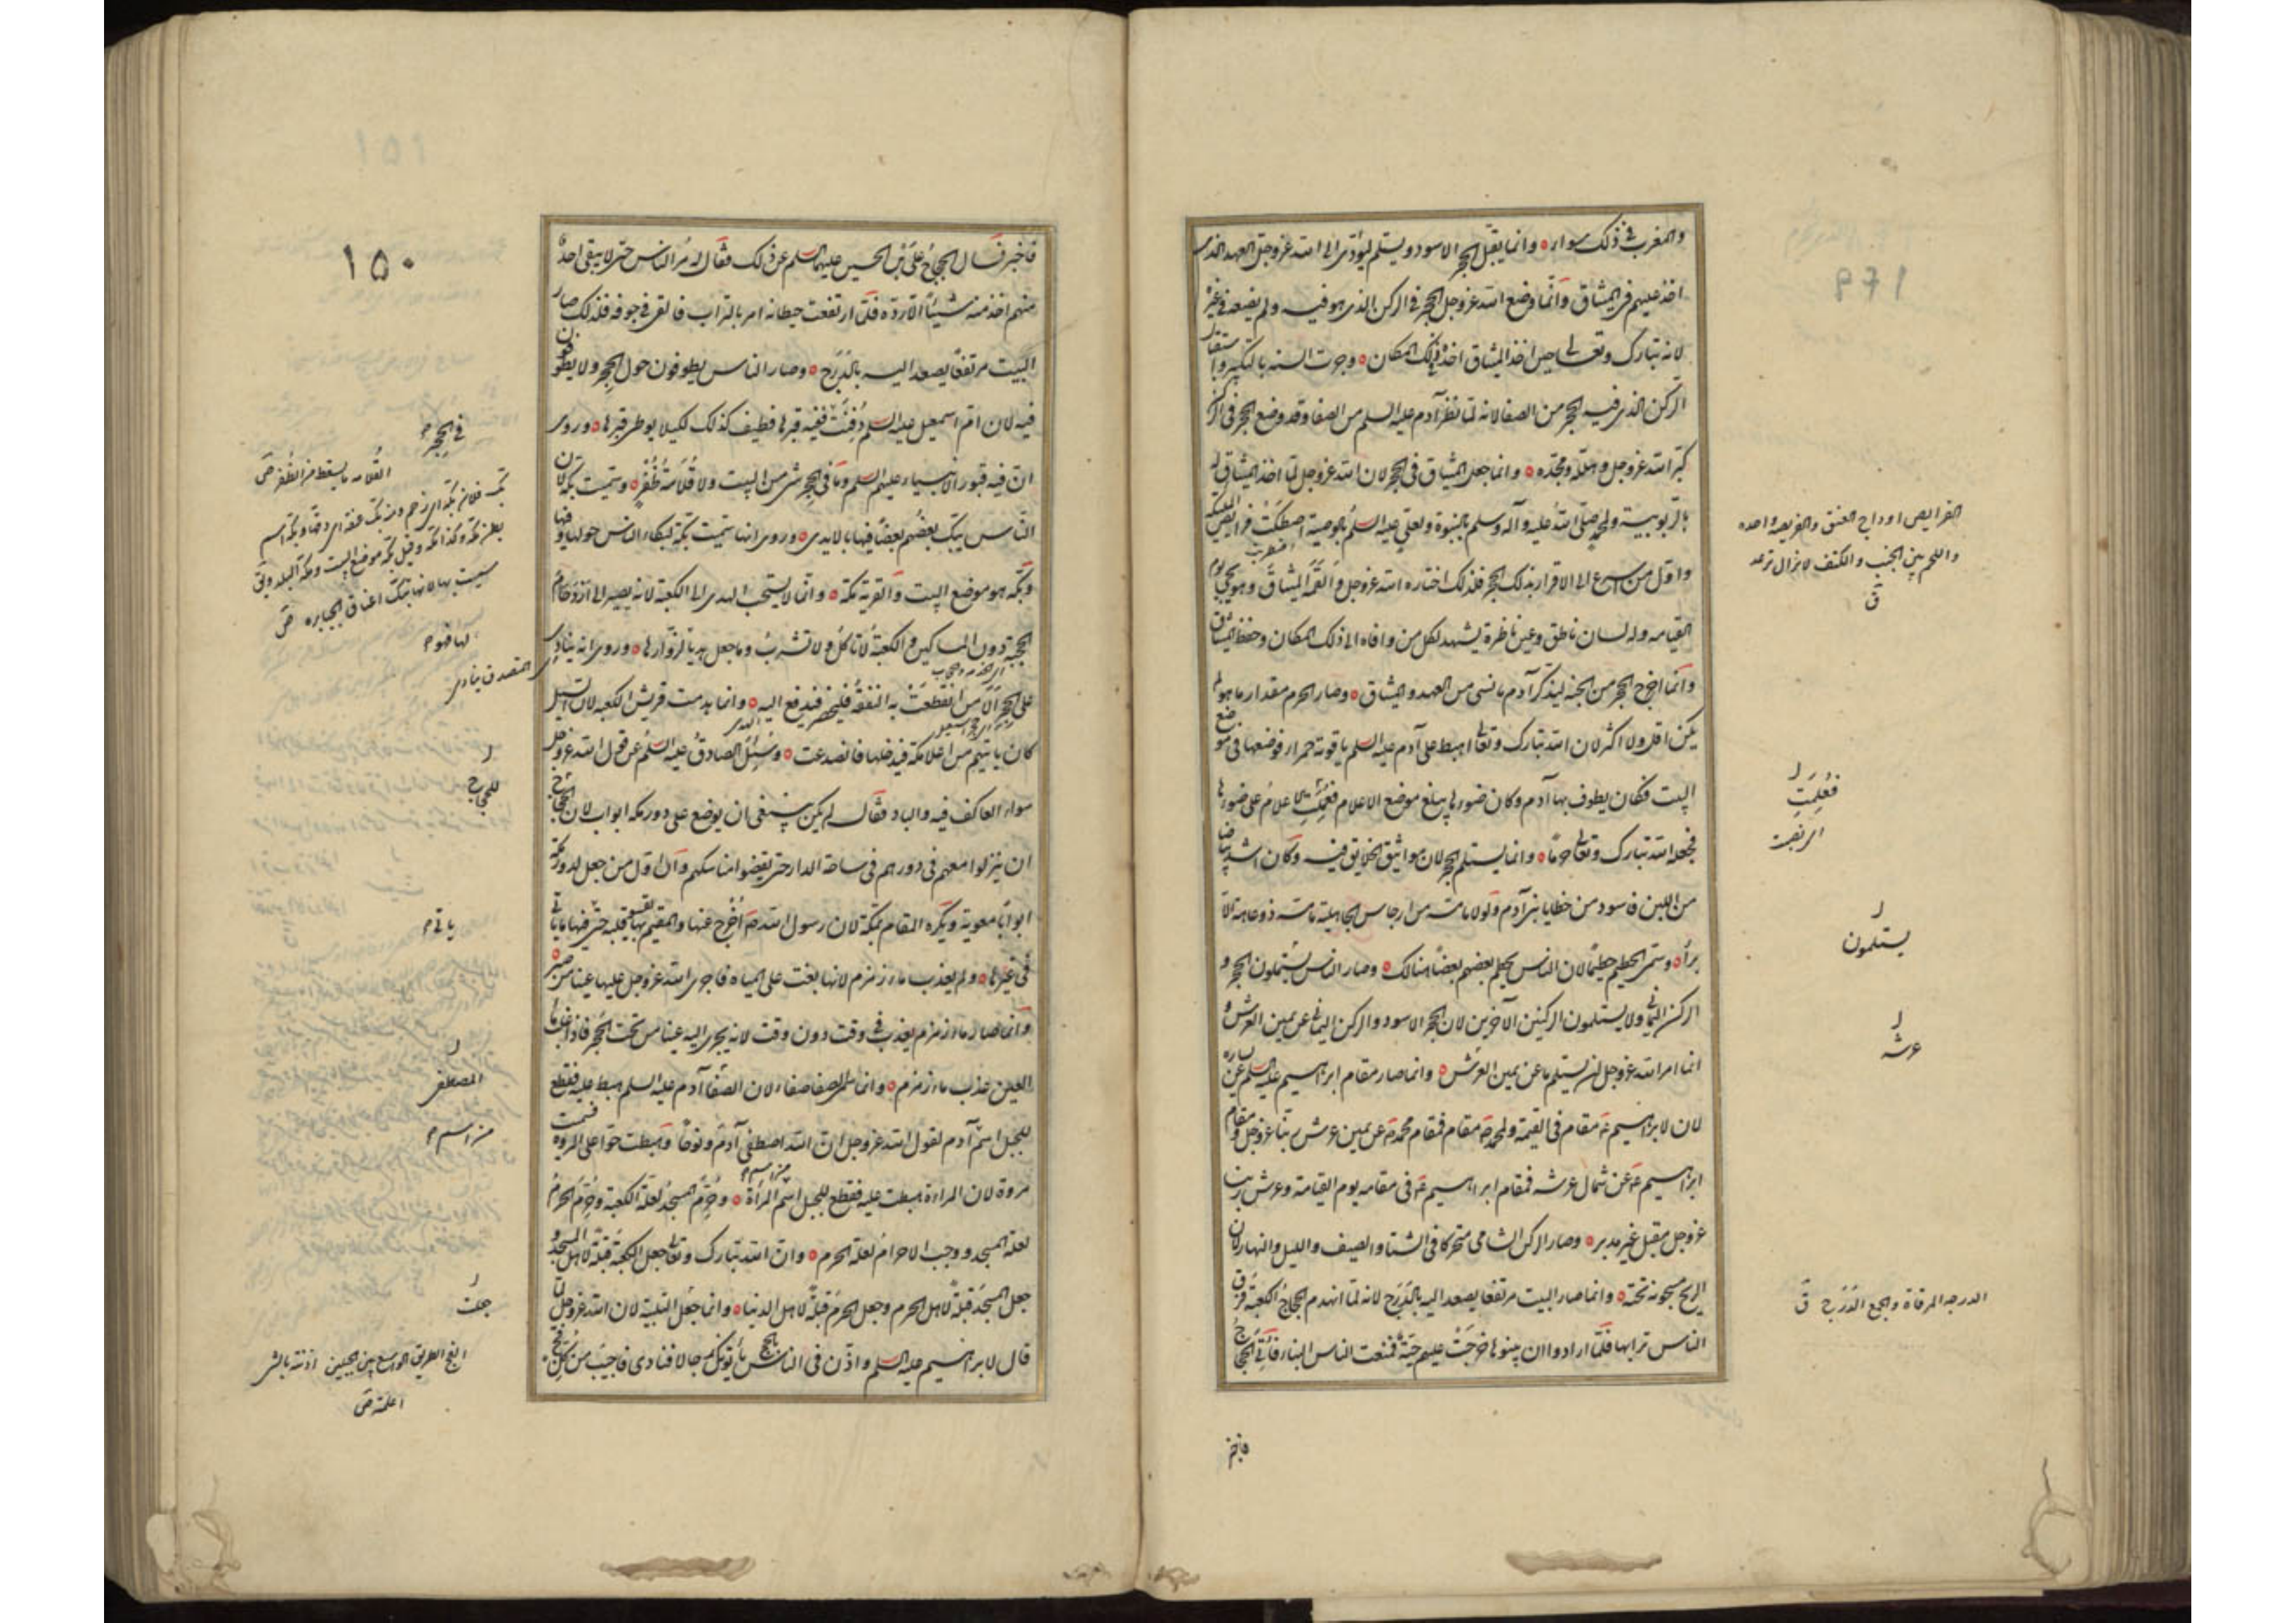 والمغرب في ذلك سواء وانما يقبل الحجر الاسود ويستلم ليؤدى الى الله عز وجل العهد الذى
اخذ عليهم في الميثاق وانما وضع الله عز وجل الحجر في الركن الذى هو فيه ولم يضعه في غيره
لانه تبارك وتعالى حين اخذ الميثاق اخذه في ذلك المكان وجرت السنة بالتكبير واستقبال
الركن الذى فيه الحجر من الصفا لانه لما نظر آدم عليه السلم من الصفا وقد وضع الحجر في الركن
كبر الله عز وجل وهلله ومجده وانما جعل الميثاق في الحجر لان الله عز وجل لما اخذ الميثاق له
بالربوبية ولمحمد صلى الله عليه وآله وسلم بالنبوة ولعلي عليه السلم بالوصية اصطكت فرايص الملئكة
واول من اسرع الى الاقرار بذلك الحجر فلذلك اختاره الله عز وجل والقمه الميثاق وهو يجئ يوم
القيامه وله لسان ناطق وعين ناظرة يشهد لكل من وافاه الى ذلك المكان وحفظ الميثاق
وانما اخرج الحجر من الجنه ليذكر آدم ما نسى من العهد والميثاق وصار الحرم مقدار ما هو لم
يكن اقل ولا اكثر لان الله تبارك وتعالى اهبط على آدم عليه السلم ياقوتة حمراء فوضعها في موضع
البيت فكان يطوف بها آدم وكان ضوءها يبلغ موضع الاعلام فعلمت الاعلام على ضوءها
فجعله الله تبارك وتعالى حرما وانما يستلم الحجر لان مواثيق الخلايق فيه وكان اشد بياضا
من اللبن فاسود من خطايا بنى آدم ولولا ما مسه من ارجاس الجاهلية ما مسه ذو عاهة الا
برأ وسمى الحطيم حطيما لان الناس يحطم بعضهم بعضا هنالك وصار الناس يستلمون الحجر و
الركن اليماني ولا يستلمون الركنين الآخرين لان الحجر الاسود والركن اليماني عن يمين العرش و
انما امر الله عز وجل ان يستلم ما عن يمين العرش وانما صار مقام ابراهيم عليه السلم عن يساره
لان لابراهيم مقام في القيمة ولمحمد مقام فمقام محمد عن يمين عرش ربنا عز وجل ومقام
ابراهيم عن شمال عرشه فمقام ابراهيم في مقامه يوم القيامة وعرش ربنا
عز وجل مقبل غير مدبر وصار الركن الشامي متحركا في الشتا والصيف والليل والنهار لان
الريح مسجونه تحته وانما صار البيت مرتفعا يصعد اليه بالدرج لانه لما انهدم الحجاج الكعبة فرق
الناس ترابها فلما ارادوا ان يبنوها خرجت عليهم حية فمنعت الناس البناء فاتى الحجاج
فاخبر
الفرايص اوداج العنق والفريصه واحده
واللحم بين الجنب والكتف لا تزال ترعد
ق
فعلمت
يستلمون
عرشه
الدرجه المرقاة والجمع الدرج ق
١٥٠
فاخبر فسال الحجاج على بن الحسين عليهما السلم عن ذلك فقال له مر الناس حتى لا يبقى احد
منهم اخذ منه شيئا الا رده فلما ارتفعت حيطانه امر بالتراب فالقى في جوفه فلذلك صار
البيت مرتفعا يصعد اليه بالدرج وصار الناس يطوفون حول الحجر ولا يطوفون
فيه لان ام اسمعيل عليه السلم دفنت ففيه قبرها فطيف كذلك لكيلا يوطى قبرها وروى
ان فيه قبور الانبياء عليهم السلم وما في الحجر شئ من البيت ولا قلامة ظفر وسميت بكة لان
الناس يبك بعضهم بعضا فيها بالايدى وروى انها سميت بكة لبكاء الناس حولها وفيها
وبكة هو موضع البيت والقرية مكة وانما لا يستحب الهدى الى الكعبة لانه يصير الى
الحجبة دون المساكين والكعبة لا تاكل ولا تشرب وما جعل هديا لزوارها وروى انه ينادى
على الحجر الا من انقطعت به النفقة فليحضر فيدفع اليه وانما هدمت قريش الكعبة لان السيل
كان ياتيهم من اعلا مكة فيدخلها فانصدعت وسئل الصادق عليه السلم عن قول الله عز وجل
سواء العاكف فيه والباد فقال لم يكن ينبغى ان يوضع على دور مكة ابواب لان للحجاج
ان ينزلوا معهم في دورهم في ساحة الدار حتى يقضوا مناسكهم وان اول من جعل لدور مكة
ابوابا معوية ويكره المقام بمكة لان رسول الله اخرج عنها والمقيم بها يقسو قلبه حتى ياتى فيها ما ياتى
في غيرها ولم يعذب ماء زمزم لانها بغت على المياه فاجرى الله عز وجل عليها عينا من صبر
وانما صار ماء زمزم يعذب في وقت دون وقت لانه يجرى اليه عينا من تحت الحجر فاذا غلب ماء
العين عذب ماء زمزم وانما سمى الصفا صفاء لان الصفا آدم عليه السلم هبط عليه فقطع
للجبل اسم آدم لقول الله عز وجل ان الله اصطفى آدم ونوحا وهبطت حوا على المروة فسميت
مروة لان المراءة هبطت عليه فقطع للجبل اسم المرأة وحرم المسجد لعلة الكعبة وحرم الحرم
لعلة المسجد ووجب الاحرام لعلة الحرم وان الله تبارك وتعالى جعل الكعبة قبلة لاهل المسجد و
جعل المسجد قبلة لاهل الحرم وجعل الحرم قبلة لاهل الدنيا وانما جعل التلبية لان الله عز وجل لما
قال لابراهيم عليه السلم واذن في الناس بالحج يأتوك رجالا فنادى فاجيب من كل فج
في الحجر
القلامه ما يسقط من الظفر ص
سميت بها لانها تبك اعناق الجبابره ص
للحجاج
ياتى م
المصطفى
من اسم م
جعلت
الفج الطريق الواسع بين الجبلين اذنته بالشى
اعلمته ص